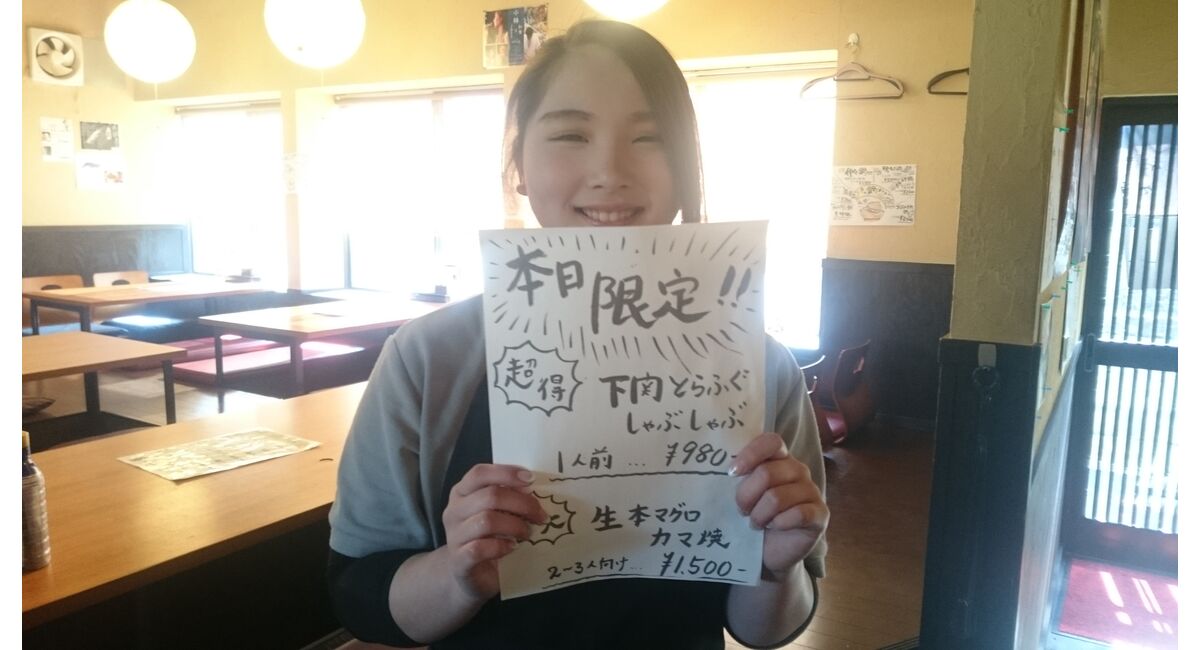 本日限定!!
超得
下関とらふぐ
しゃぶしゃぶ
1人前…¥980-
大
生本マグロ
カマ焼
2-3人向け…¥1.500-